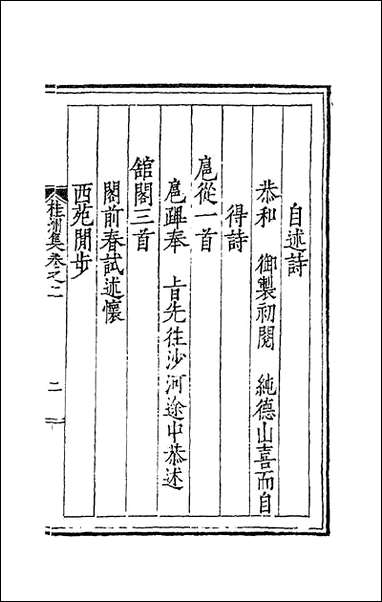 自述詩
恭和　御製初閱　純德山喜而自
得詩
扈從一首
扈蹕奉　旨先往沙河途中恭述
舘閣三首
閣前春試述懷
西苑閒步
桂洲集卷之二
二